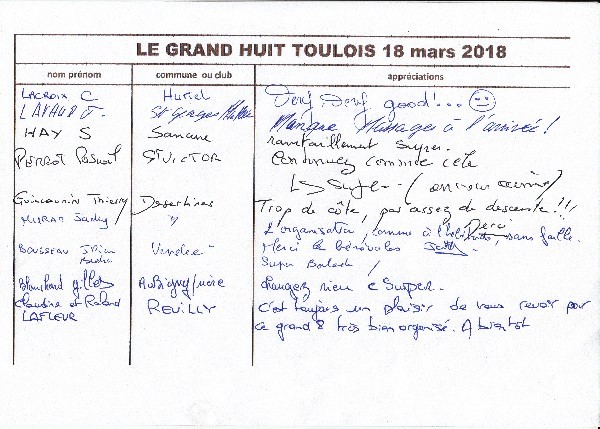 LE GRAND HUIT TOULOIS 18 mars 2018
nom prénom commune ou club appréciations
LACROIX C. Huriel Very Very good!...
LAVAUD J. St Georges Manque Massages à l'arrivée!
HAY S Sancerre ravitaillement Super.
PIERROT Pascal ST VICTOR Continuez comme cela
Le Super
Thierry Desertines Trop de côte, pas assez de descente!!!
MURAT " L'organisation, comme à l', sans faille.
Merci
BOUSSEAU Vendée Merci les bénévoles
Super Balade!
Blanchard gilles Aubigny/nère changez rien c Super.
Claudine et Roland REUILLY c'est toujours un plaisir de vous revoir pour
LAFLEUR ce grand 8 très bien organisé. A bientot